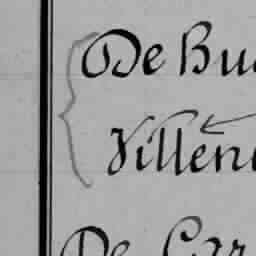 De Bu
Villen
De Car